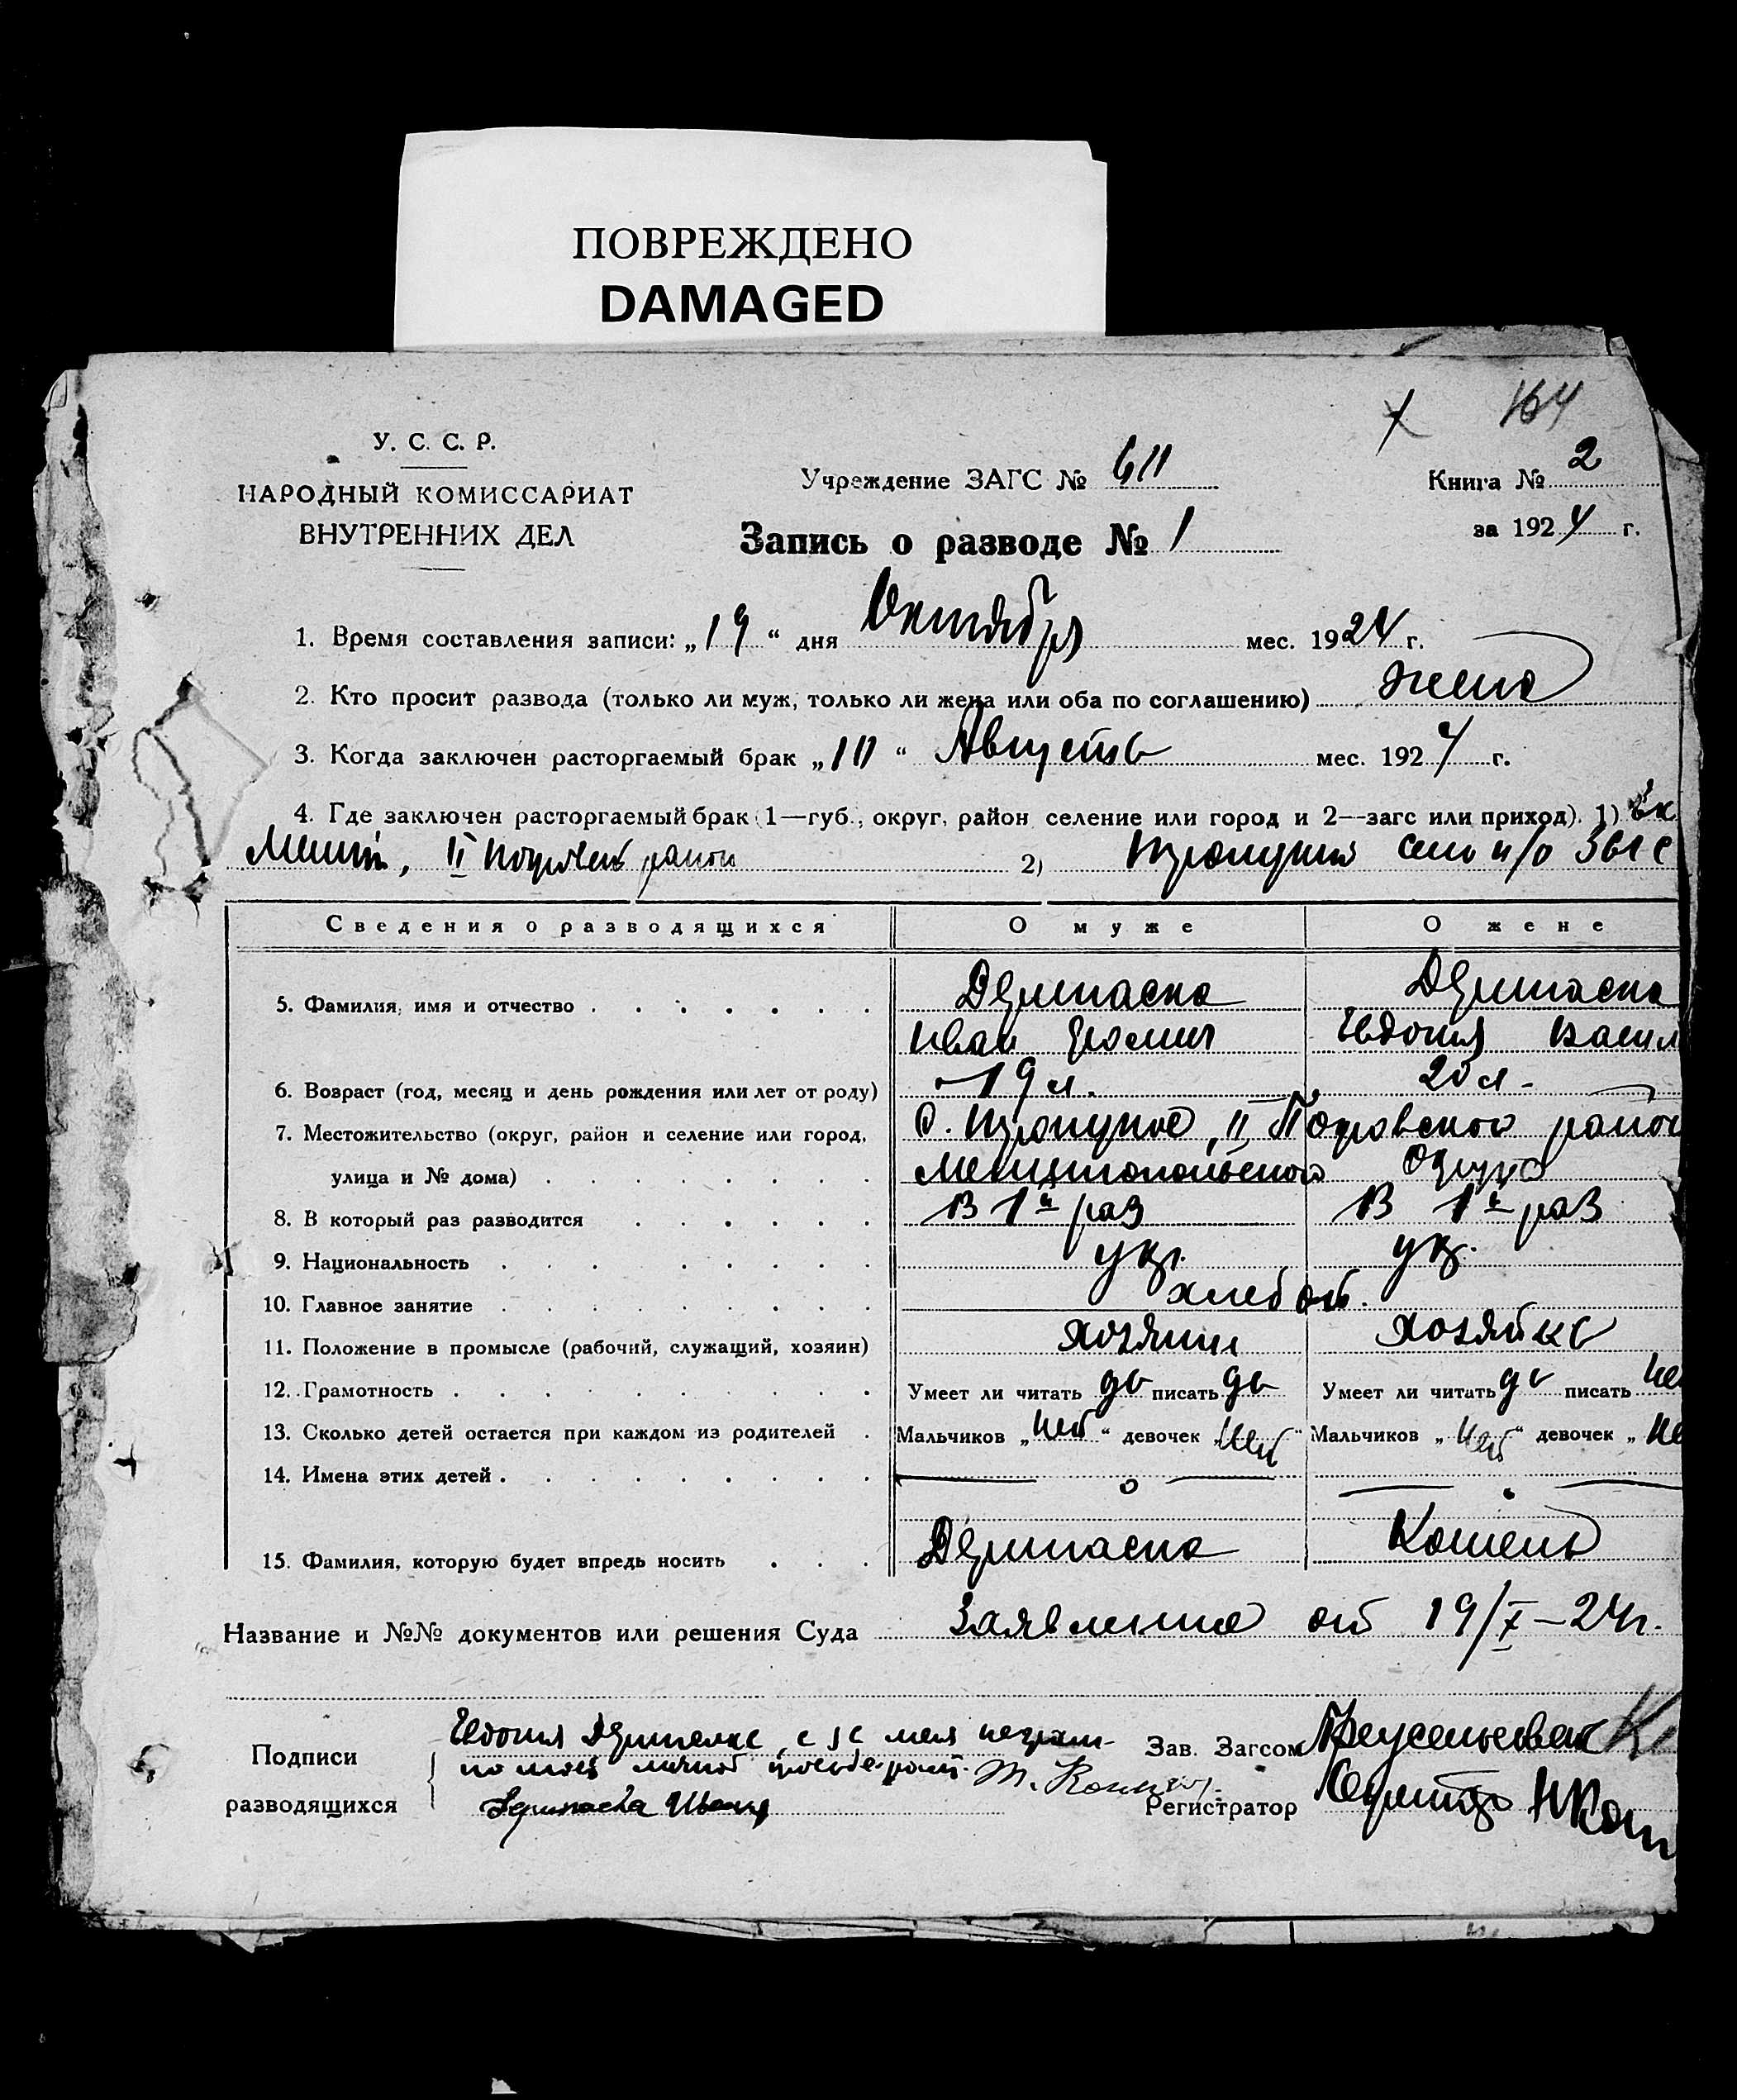 ПОВРЕЖДЕНО
DAMAGED
164
У. С. С. Р.
НАРОДНЫЙ КОМИССАРИАТ
ВНУТРЕННИХ ДЕЛ
Учреждение ЗАГС № 611
Книга № 2
за 1924 г.
Запись о разводе № 1
1. Время составления записи: „19“ дня Октября мес. 1924 г.
2. Кто просит развода (только ли муж, только ли жена или оба по соглашению) жена
3. Когда заключен расторгаемый брак „10“ Августа мес. 1924 г.
4. Где заключен расторгаемый брак (1—губ., округ, район селение или город и 2—загс или приход). 1) Ек
Мелит, II Покровск район 2) село
Сведения о разводящихся О муже О жене
5. Фамилия, имя и отчество Дерипаска Дерипаска
Иван Евдокия Васил
6. Возраст (год, месяц и день рождения или лет от роду) 19 л. 20 л.
7. Местожительство (округ, район и селение или город, II Покровского район
улица и № дома) Мелитопольского Округа
8. В который раз разводится В 1й раз В 1й раз
9. Национальность укр. укр.
10. Главное занятие хлебоп.
11. Положение в промысле (рабочий, служащий, хозяин) хозяин хозяйка
12. Грамотность Умеет ли читать да писать да Умеет ли читать да писать не
13. Сколько детей остается при каждом из родителей Мальчиков „нет“ девочек „нет“ Мальчиков „нет“ девочек „не
14. Имена этих детей
15. Фамилия, которую будет впредь носить Дерипаска Кошель
Название и №№ документов или решения Суда Заявление от 19/X–24 г.
Подписи
разводящихся
Евдокия Дерипаска, а за меня неграм-
по моей личной просьбе
Дерипаска Иван
Зав. Загсом
Регистратор